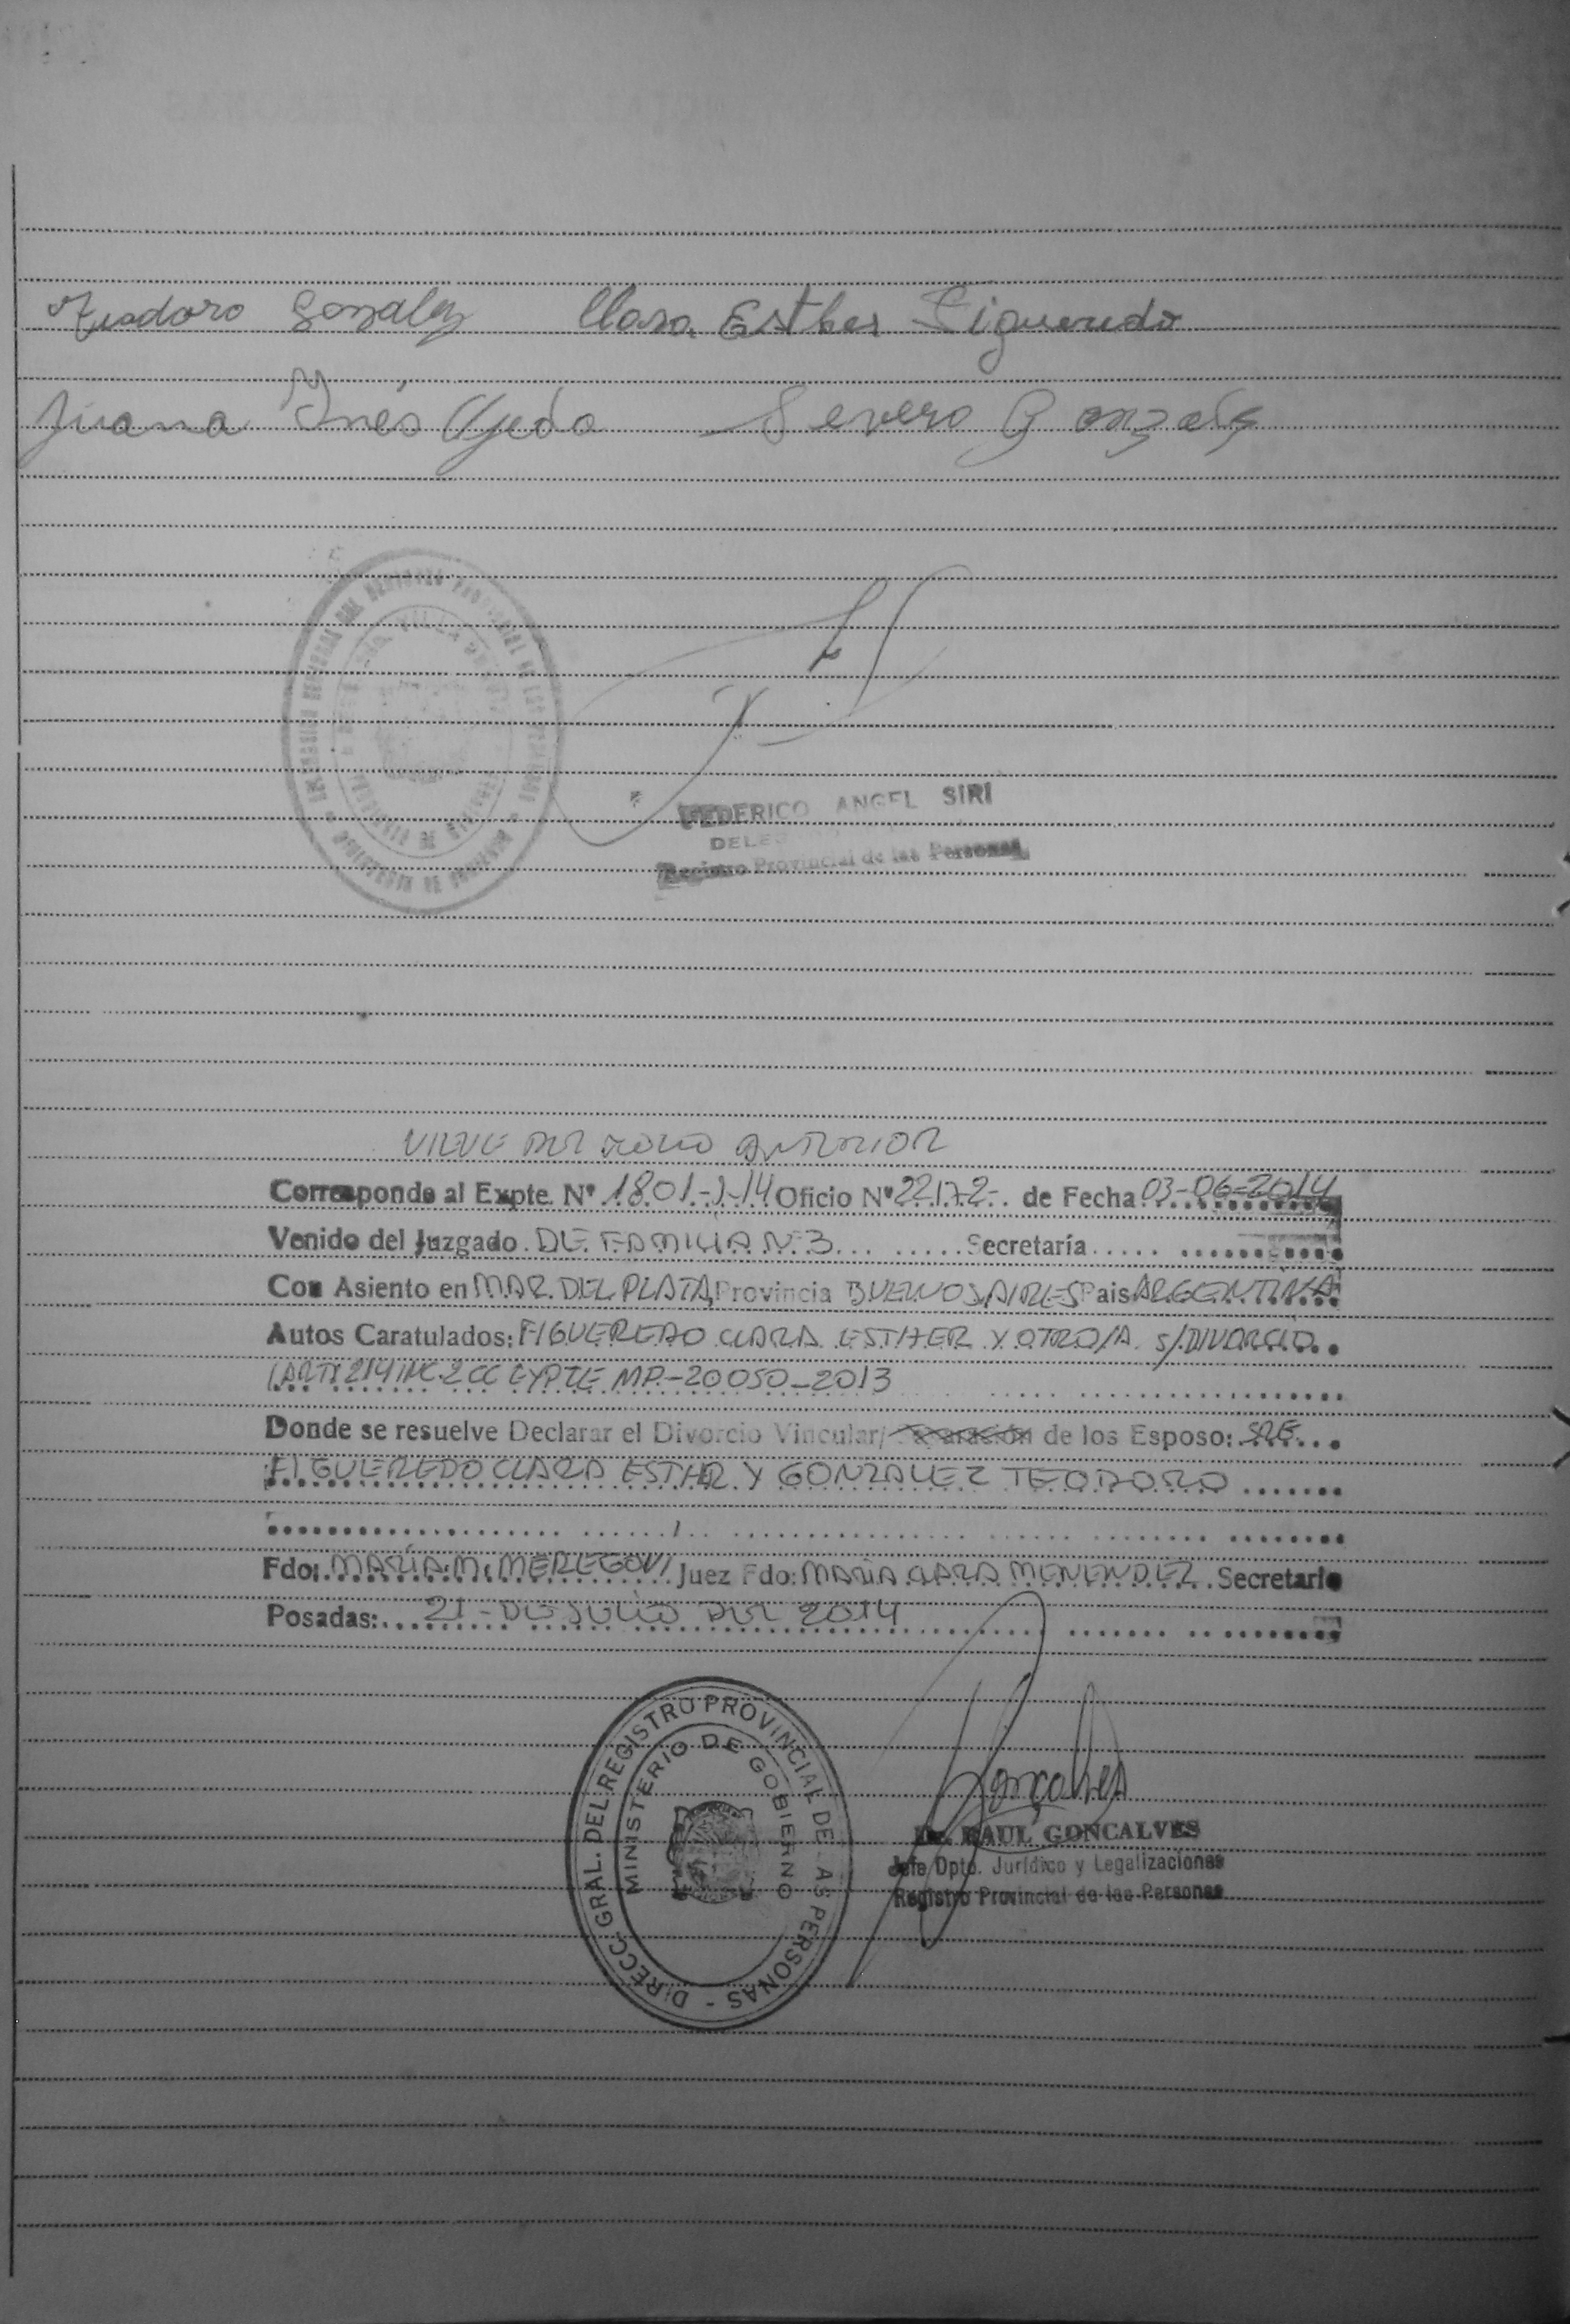 Teodoro Gonzalez Clara Esther Figueredo
Juana Ynés Ojeda Severo Gonzalez
FEDERICO ANGEL SIRI
Registro Provincial de las Personas
VIENE DEL FOLIO ANTERIOR
Corresponde al Expte. Nº 1801-J-14 Oficio Nº 22172-. de Fecha 03-06-2014
Venido del Juzgado DE FAMILIA Nº3 Secretaría
Con Asiento en MAR DEL PLATA, Provincia BUENOS AIRES Pais ARGENTINA
Autos Caratulados: FIGUEREDO CLARA ESTHER Y OTRO/A S/DIVORCIO
(ART. 214 INC. 2 CC EXPTE MP-20050-2013
Donde se resuelve Declarar el Divorcio Vincular/Separación de los Esposo: SRE.
FIGUEREDO CLARA ESTHER Y GONZALEZ TEODORO
Fdo: MARÍA M. MEREGONI Juez Fdo: MARÍA CLARA MENENDEZ Secretario
Posadas: 21-DE JULIO DEL 2014
DIRECC. GRAL. DEL REGISTRO PROVINCIAL DE LAS PERSONAS -
MINISTERIO DE GOBIERNO
Goncalves
Dr. RAUL GONCALVES
Jefe Dpto. Jurídico y Legalizaciones
Registro Provincial de las Personas